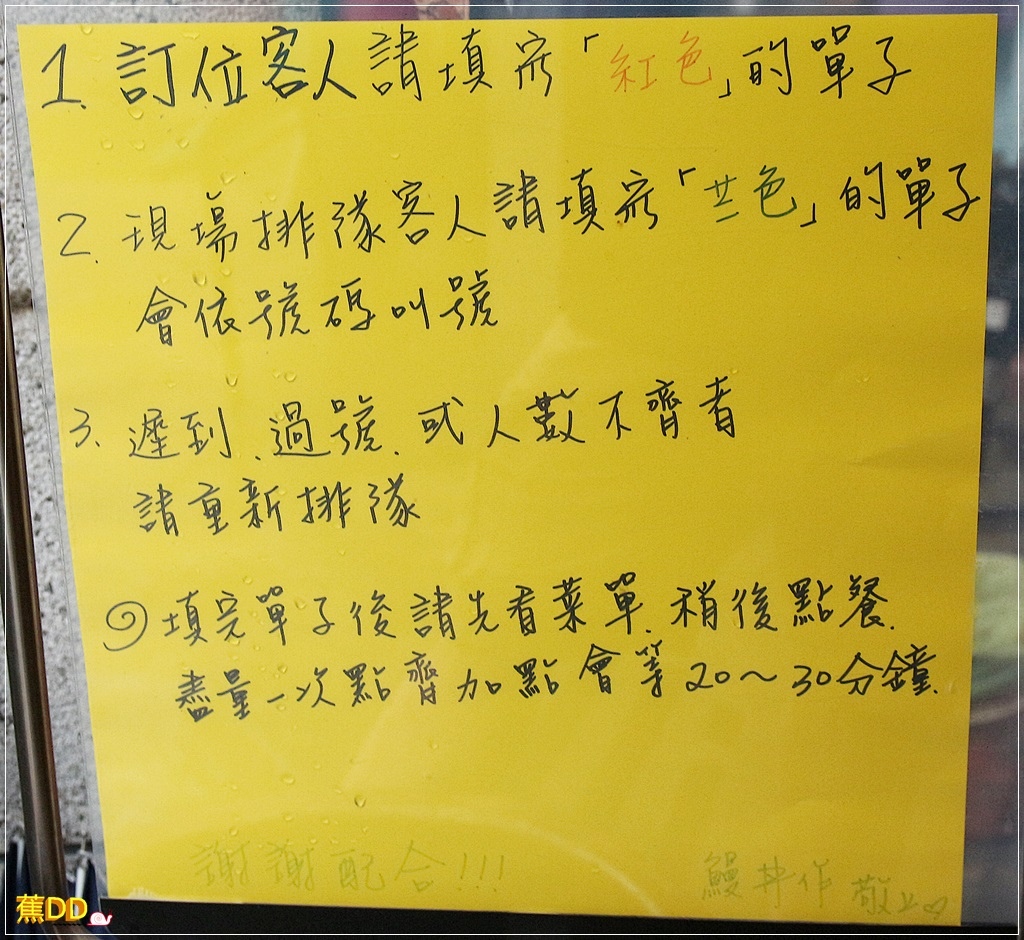 1. 訂位客人請填寫「紅色」的單子
2. 現場排隊客人請填寫「兰色」的單子
會依號碼叫號
3. 遲到、過號、或人數不齊者
請重新排隊
填完單子後請先看菜單、稍後點餐、
盡量一次點齊加點會等20～30分鐘、
謝謝配合!!!
鰻丼作 敬上♡
蕉DD